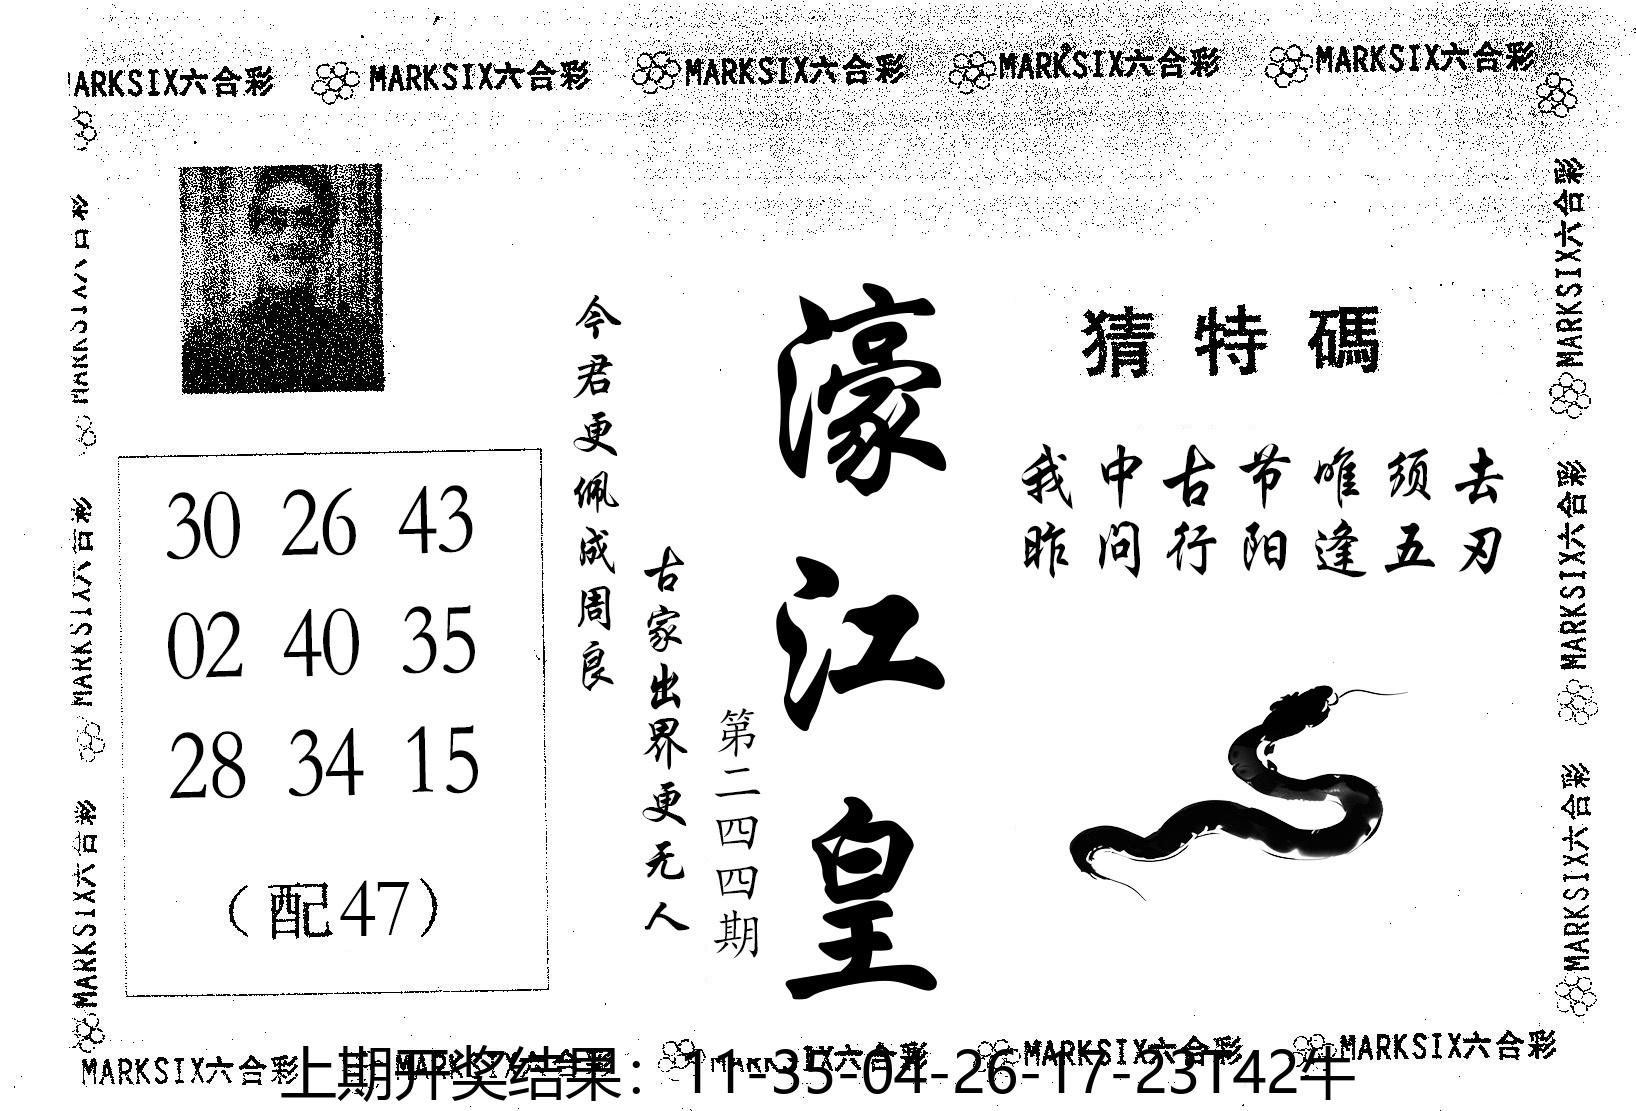 MARKSIX六合彩 MARKSIX六合彩 MARKSIX六合彩 MARKSIX六合彩
猜特碼
我中古节唯须去
昨问行阳逢五刃
濠江皇
第二四四期
古家出界更无人
今君更佩成周良
30 26 43
02 40 35
28 34 15
(配47)
MARKSIX六合彩
MARKSIX六合彩
MARKSIX六合彩
MARKSIX六合彩
MARKSIX六合彩
MARKSIX六合彩 MARKSIX六合彩 MARKSIX六合彩
上期开奖结果：11-35-04-26-17-23T42牛